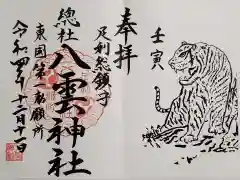 壬寅
奉拝
足利総鎮守
總社
八雲神社
東国第一勅願所
令和四年十二月十一日